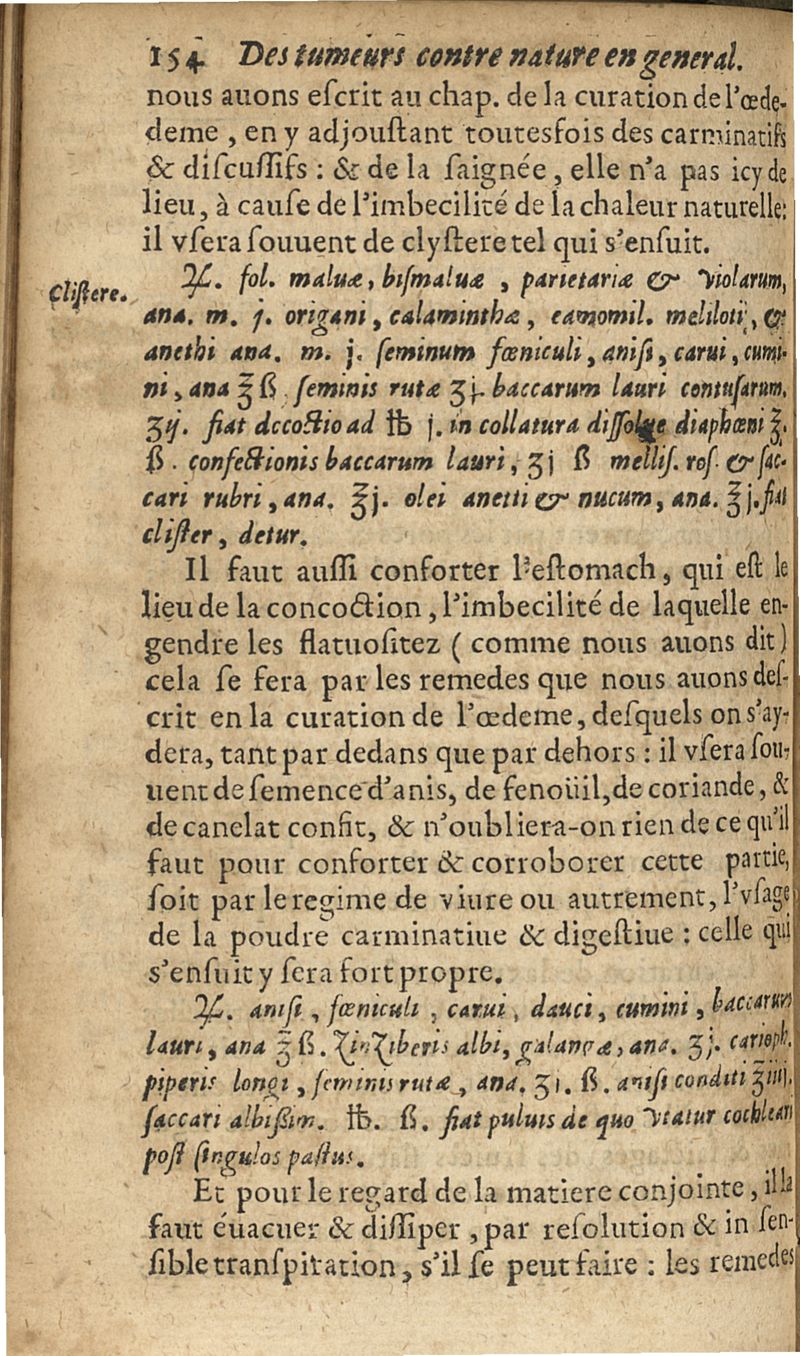 154 Des tumeurs contre nature en general.
nous auons eſcrit au chap. de la curation de l'œde-
deme, en y adjouſtant toutesfois des carminatifs
& diſcuſſifs : & de la ſaignée, elle n'a pas icy de
lieu, à cauſe de l'imbecilité de la chaleur naturelle:
il vſera ſouuent de clyſtere tel qui s'enſuit.
Cliſtere.
♃. fol. maluæ, biſmaluæ, parietariæ & violarum,
ana. m. j. origani, calaminthæ, camomil. meliloti, &
anethi ana. m. j. ſeminum fœniculi, aniſi, carui, cumi-
ni, ana ℥ ß. ſeminis rutæ ʒj. baccarum lauri contuſarum,
ʒij. fiat decoctio ad ℔ j. in collatura diſſolue diaphœni ℥.
ß. confectionis baccarum lauri, ʒj ß melliſ. roſ. & ſac-
cari rubri, ana. ℥j. olei anetti & nucum, ana. ℥j. fiat
cliſter, detur.
Il faut auſſi conforter l'eſtomach, qui eſt le
lieu de la concoction, l'imbecilité de laquelle en-
gendre les flatuoſitez ( comme nous auons dit )
cela ſe fera par les remedes que nous auons deſ-
crit en la curation de l'œdeme, deſquels on s'ay-
dera, tant par dedans que par dehors : il vſera ſou-
uent de ſemence d'anis, de fenoüil, de coriande, &
de canelat confit, & n'oubliera-on rien de ce qu'il
faut pour conforter & corroborer cette partie,
ſoit par le regime de viure ou autrement, l'vſage
de la poudre carminatiue & digeſtiue : celle qui
s'enſuit y ſera fort propre.
♃. aniſi, fœniculi, carui, dauci, cumini, baccarum
lauri, ana ℥ ß. Zinziberis albi, galangæ, ana. ʒj. carioph.
piperis longi, ſeminis rutæ, ana. ʒj. ß. aniſi conditi ℥iiij.
ſaccari albißim. ℔. ß. fiat puluis de quo vtatur cochleari
poſt ſingulos paſtus.
Et pour le regard de la matiere conjointe, il la
faut éuacuer & diſſiper, par reſolution & in ſen-
ſible tranſpiration, s'il ſe peut faire : les remedes